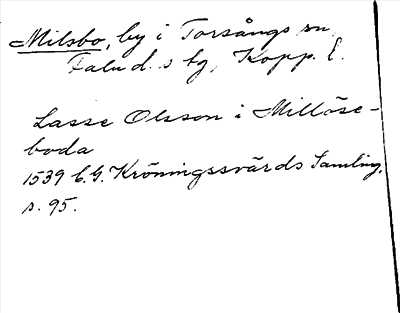 Milsbo, by i Torsångs sn,
Falu d. s tg, Kopp. l.
Lasse Olsson i Millöse-
boda
1539 C. G. Kröningssvärds Samling,
s. 95.